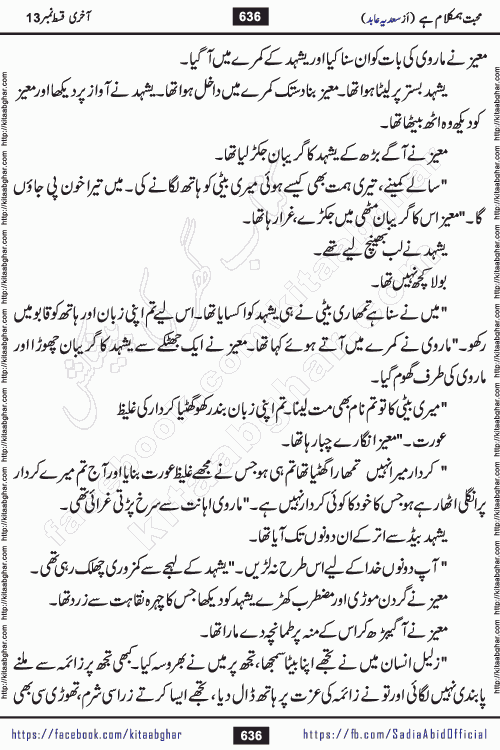 محبت ہمکلام ہے (از سعدیہ عابد) 636 آخری قسط نمبر 13
معیز نے ماروی کی بات کو ان سنا کیا اور یشہد کے کمرے میں آ گیا۔
یشہد بستر پر لیٹا ہوا تھا۔ معیز بنا دستک کمرے میں داخل ہوا تھا۔ یشہد نے آواز پر دیکھا اور معیز
کو دیکھ وہ اٹھ بیٹھا تھا۔
معیز نے آگے بڑھ کے یشہد کا گریبان جکڑ لیا تھا۔
"سالے کمینے، تیری ہمت بھی کیسے ہوئی میری بیٹی کو ہاتھ لگانے کی۔ میں تیرا خون پی جاؤں
گا۔" معیز اس کا گریبان مٹھی میں جکڑے، غرا رہا تھا۔
یشہد نے لب بھینچ لیے تھے۔
بولا کچھ نہیں تھا۔
"میں نے سنا ہے تمھاری بیٹی نے ہی یشہد کو اکسایا تھا۔ اس لیے تم اپنی زبان اور ہاتھ کو قابو میں
رکھو۔" ماروی نے کمرے میں آتے ہوئے کہا تھا۔ معیز نے ایک جھٹکے سے یشہد کا گریبان چھوڑا اور
ماروی کی طرف گھوم گیا۔
"میری بیٹی کا تو تم نام بھی مت لینا۔ تم اپنی زبان بند رکھو گھٹیا کردار کی غلیظ
عورت۔" معیز انگارے چبا رہا تھا۔
"کردار میرا نہیں تمھارا گھٹیا تھا تم ہی ہو جس نے مجھے غلیظ عورت بنایا اور آج تم میرے کردار
پر انگلی اٹھا رہے ہو جس کا خود کا کوئی کردار نہیں ہے۔" ماروی اہانت سے سرخ پڑتی غرائی تھی۔
یشہد بیڈ سے اتر کے ان دونوں تک آیا تھا۔
"آپ دونوں خدا کے لیے اس طرح نہ لڑیں۔" یشہد کے لہجے سے کمزوری چھلک رہی تھی۔
معیز نے گردن موڑی اور مضطرب کھڑے یشہد کو دیکھا جس کا چہرہ نقاہت سے زرد تھا۔
معیز نے آگے بڑھ کر اس کے منہ پر طمانچہ دے مارا تھا۔
"ذلیل انسان میں نے تجھے اپنا بیٹا سمجھا، تجھ پر میں نے بھروسہ کیا۔ کبھی تجھ پر زائمہ سے ملنے
پابندی نہیں لگائی اور تو نے زائمہ کی عزت پر ہاتھ ڈال دیا، تجھے ایسا کرتے ذرا سی شرم، تھوڑی سی بھی
https://facebook.com/kitaabghar 636 https://fb.com/SadiaAbidOfficial
http://kitaabghar.com
facebook.com/kitaabghar
kitaabghar.com